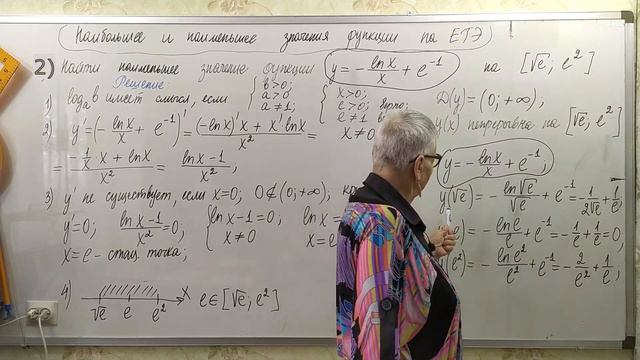 Наибольшее и наименьшее значения функции на ЕГЭ
2) Найти наименьшее значение функции y = -\frac{ln x}{x} + e^{-1} на [√e; e²]
Решение
1) log_a b имеет смысл, если { b>0; a>0; a≠1; { x>0; e>0; e≠1 D(y) = (0; +∞);
y(x) непрерывна на [√e; e²]
2) y' = (-\frac{ln x}{x} + e^{-1})' = \frac{(-ln x)' x + x' ln x}{x²} = x≠0
y = -\frac{ln x}{x} + e^{-1};
= \frac{-\frac{1}{x} · x + ln x}{x²} = \frac{ln x - 1}{x²};
3) y' не существует, если x=0; 0∉(0; +∞);
y'=0; \frac{ln x - 1}{x²} = 0; { ln x - 1 = 0; x≠0 ln x = x = e
x = e - стац. точка;
y(√e) = -\frac{ln √e}{√e} + e^{-1} = -\frac{1}{2√e} + \frac{1}{e};
e) = -\frac{ln e}{e} + e^{-1} = -\frac{1}{e} + \frac{1}{e} = 0;
(e²) = -\frac{ln e²}{e²} + e^{-1} = -\frac{2}{e²} + \frac{1}{e};
4) √e e e² x e∈[√e; e²]